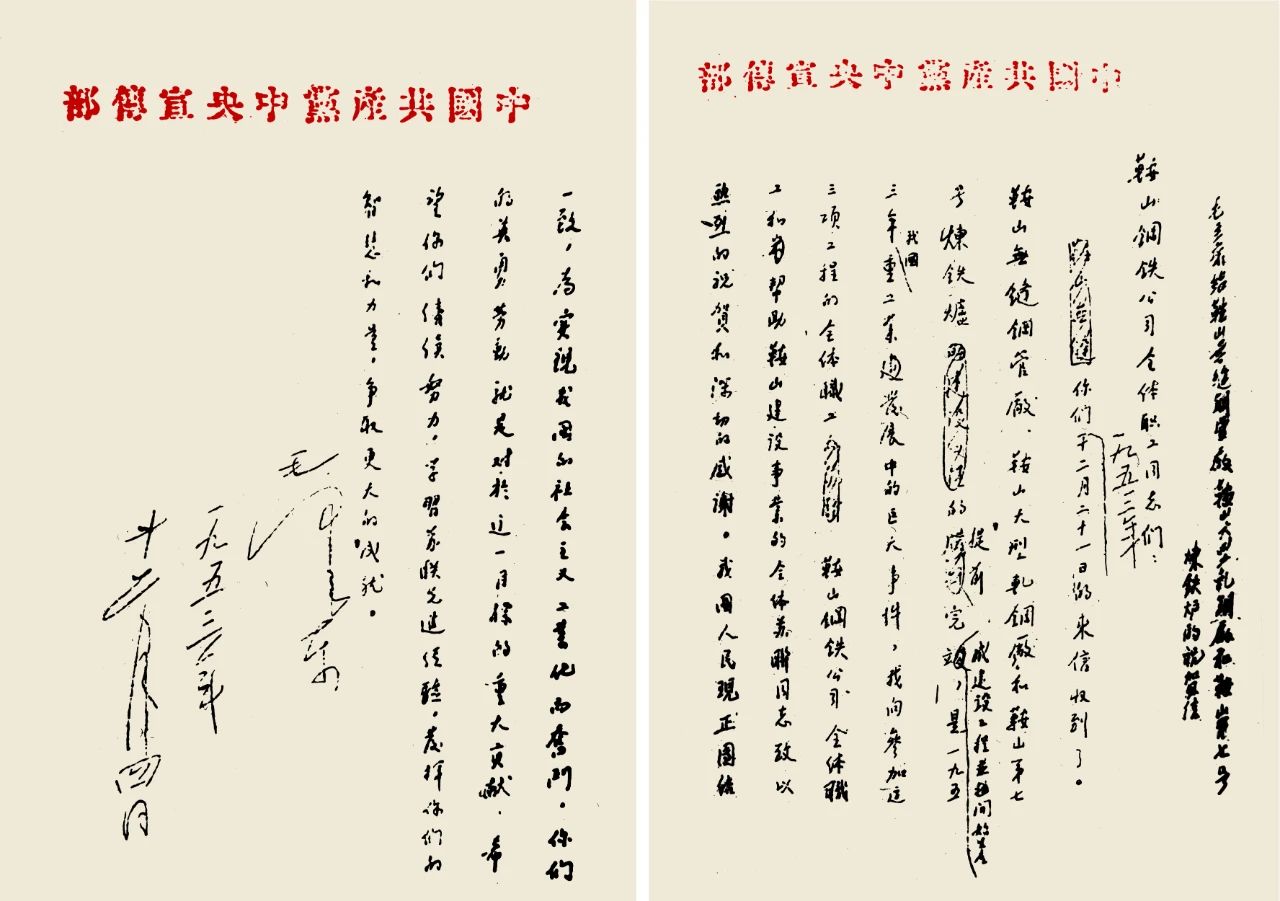 中國共產黨中央宣傳部
毛主席给鞍山無缝鋼管廠鞍山大型軋鋼廠和鞍山第七号
煉铁炉的祝賀信
鞍山鋼铁公司全体职工同志们：
一九五三年
你们十二月二十一日的来信收到了。
鞍山無縫鋼管廠、鞍山大型軋鋼廠和鞍山第七
提前
成建设工程並开始生产
号煉铁爐的完，是一九五
我国
三年重工業發展中的巨大事件，我向參加这
三項工程的全体職工鞍山鋼铁公司全体職
工和帮助鞍山建設事業的全体苏聯同志致以
熱烈的祝賀和深切的感謝。我国人民現正團结
中國共產黨中央宣傳部
一致，為实現我国的社会主义工業化而奮鬥。你们
的英勇劳動就是对於这一目标的重大貢献。希
望你们继續努力，学習苏联先進经驗，發揮你们的
智慧和力量，争取更大的成就。
毛泽东
一九五三年
十二月廿四日